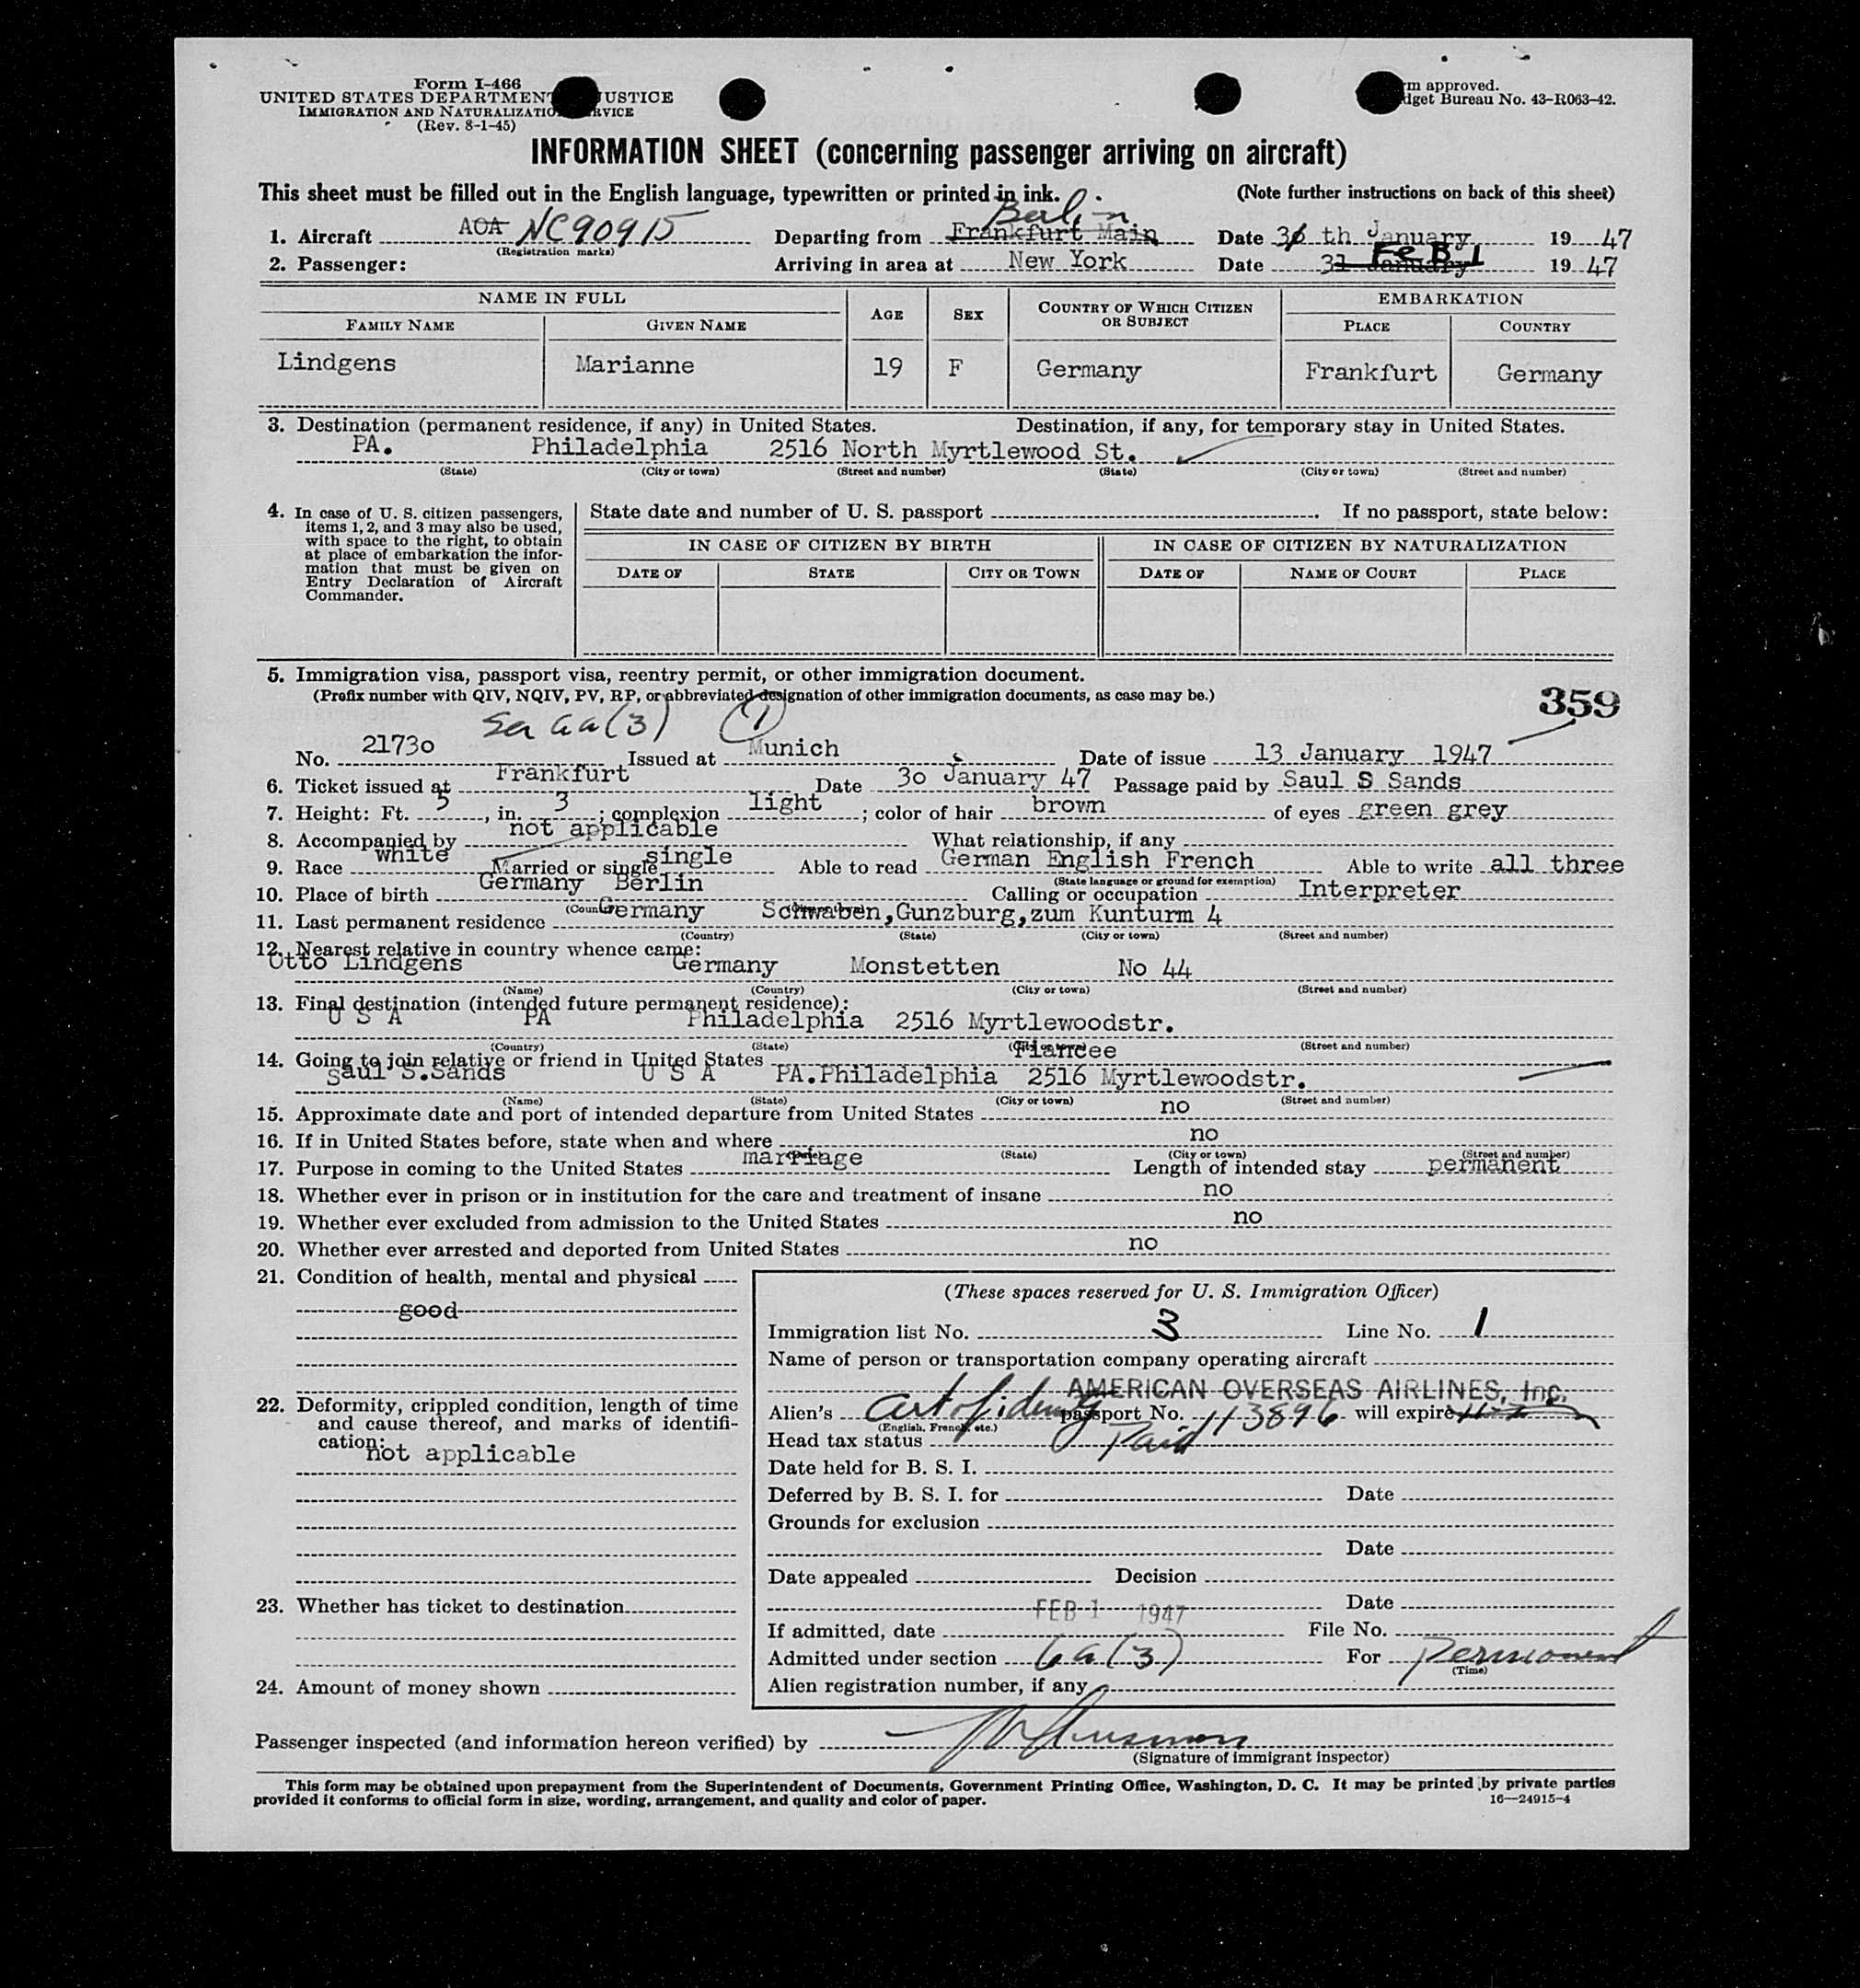 Form I-466
UNITED STATES DEPARTMENT USTICE
IMMIGRATION AND NATURALIZATIO RVICE
(Rev. 8-1-45)
rm approved.
dget Bureau No. 43-R063-42.
INFORMATION SHEET (concerning passenger arriving on aircraft)
This sheet must be filled out in the English language, typewritten or printed in ink. (Note further instructions on back of this sheet)
Berlin
1. Aircraft AOA NC90915 Departing from Frankfurt Main Date th January 1947
(Registration marks)
2. Passenger: Arriving in area at New York Date 31 January FeB 1 1947
NAME IN FULL AGE SEX COUNTRY OF WHICH CITIZEN OR SUBJECT EMBARKATION
FAMILY NAME GIVEN NAME PLACE COUNTRY
Lindgens Marianne 19 F Germany Frankfurt Germany
3. Destination (permanent residence, if any) in United States. Destination, if any, for temporary stay in United States.
PA. Philadelphia 2516 North Myrtlewood St.
(State) (City or town) (Street and number) (State) (City or town) (Street and number)
4. In case of U. S. citizen passengers, items 1, 2, and 3 may also be used, with space to the right, to obtain at place of embarkation the information that must be given on Entry Declaration of Aircraft Commander.
State date and number of U. S. passport . If no passport, state below:
IN CASE OF CITIZEN BY BIRTH IN CASE OF CITIZEN BY NATURALIZATION
DATE OF STATE CITY OR TOWN DATE OF NAME OF COURT PLACE
5. Immigration visa, passport visa, reentry permit, or other immigration document.
(Prefix number with QIV, NQIV, PV, RP, or abbreviated designation of other immigration documents, as case may be.) 359
(3) (1)
No. 21730 Issued at Munich Date of issue 13 January 1947
6. Ticket issued at Frankfurt Date 30 January 47 Passage paid by Saul S Sands
7. Height: Ft. 5, in. 3; complexion light; color of hair brown of eyes green grey
8. Accompanied by not applicable What relationship, if any
9. Race white Married or single single Able to read German English French Able to write all three
(State language or ground for exemption)
10. Place of birth Germany Berlin Calling or occupation Interpreter
11. Last permanent residence Germany Schwaben, Gunzburg, zum Kunturm 4
(Country) (State) (City or town) (Street and number)
12. Nearest relative in country whence came:
Otto Lindgens Germany Monstetten No 44
(Name) (Country) (City or town) (Street and number)
13. Final destination (intended future permanent residence):
U S A PA Philadelphia 2516 Myrtlewoodstr.
(Country) (State) (City or town) (Street and number)
14. Going to join relative or friend in United States Fiancee
Saul S.Sands U S A PA.Philadelphia 2516 Myrtlewoodstr.
(Name) (State) (City or town) (Street and number)
15. Approximate date and port of intended departure from United States no
16. If in United States before, state when and where no
(State) (City or town) (Street and number)
17. Purpose in coming to the United States marriage Length of intended stay permanent
18. Whether ever in prison or in institution for the care and treatment of insane no
19. Whether ever excluded from admission to the United States no
20. Whether ever arrested and deported from United States no
21. Condition of health, mental and physical
good
22. Deformity, crippled condition, length of time and cause thereof, and marks of identification:
not applicable
23. Whether has ticket to destination
24. Amount of money shown
(These spaces reserved for U. S. Immigration Officer)
Immigration list No. 3 Line No. 1
Name of person or transportation company operating aircraft
AMERICAN OVERSEAS AIRLINES, Inc.
Alien's Cert of identity passport No. 113896 will expire
(English, French, etc.)
Head tax status Paid
Date held for B. S. I.
Deferred by B. S. I. for Date
Grounds for exclusion
Date
Date appealed Decision
Date
If admitted, date FEB 1 1947 File No.
Admitted under section 6a(3) For permanent
(Time)
Alien registration number, if any
Passenger inspected (and information hereon verified) by
(Signature of immigrant inspector)
This form may be obtained upon prepayment from the Superintendent of Documents, Government Printing Office, Washington, D. C. It may be printed by private parties
provided it conforms to official form in size, wording, arrangement, and quality and color of paper. 16—24915-4